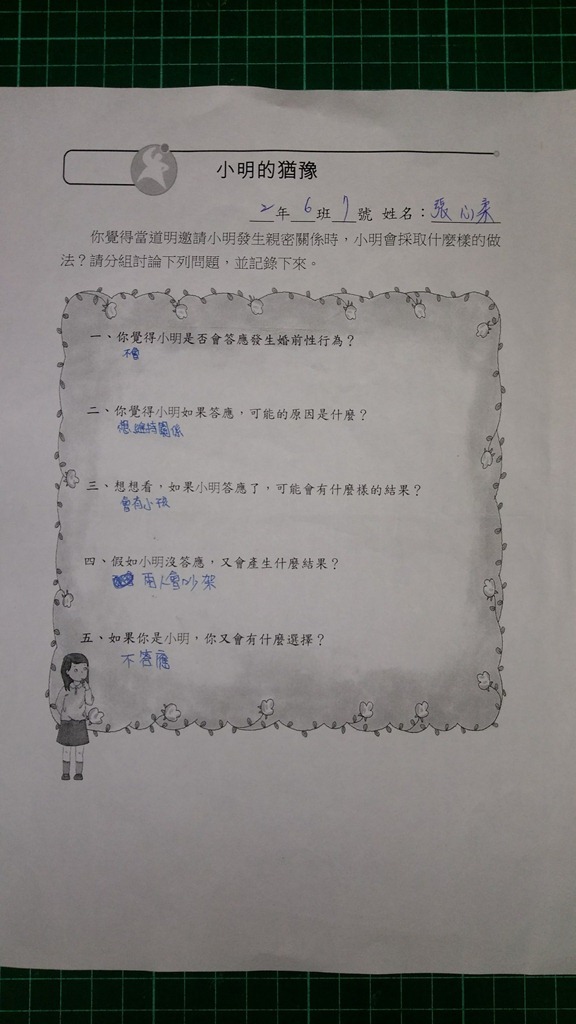 小明的猶豫
2年6班7號 姓名：張心柔
你覺得當道明邀請小明發生親密關係時，小明會採取什麼樣的做
法？請分組討論下列問題，並記錄下來。
一、你覺得小明是否會答應發生婚前性行為？
不會
二、你覺得小明如果答應，可能的原因是什麼？
想維持關係
三、想想看，如果小明答應了，可能會有什麼樣的結果？
會有小孩
四、假如小明沒答應，又會產生什麼結果？
兩人會吵架
五、如果你是小明，你又會有什麼選擇？
不答應